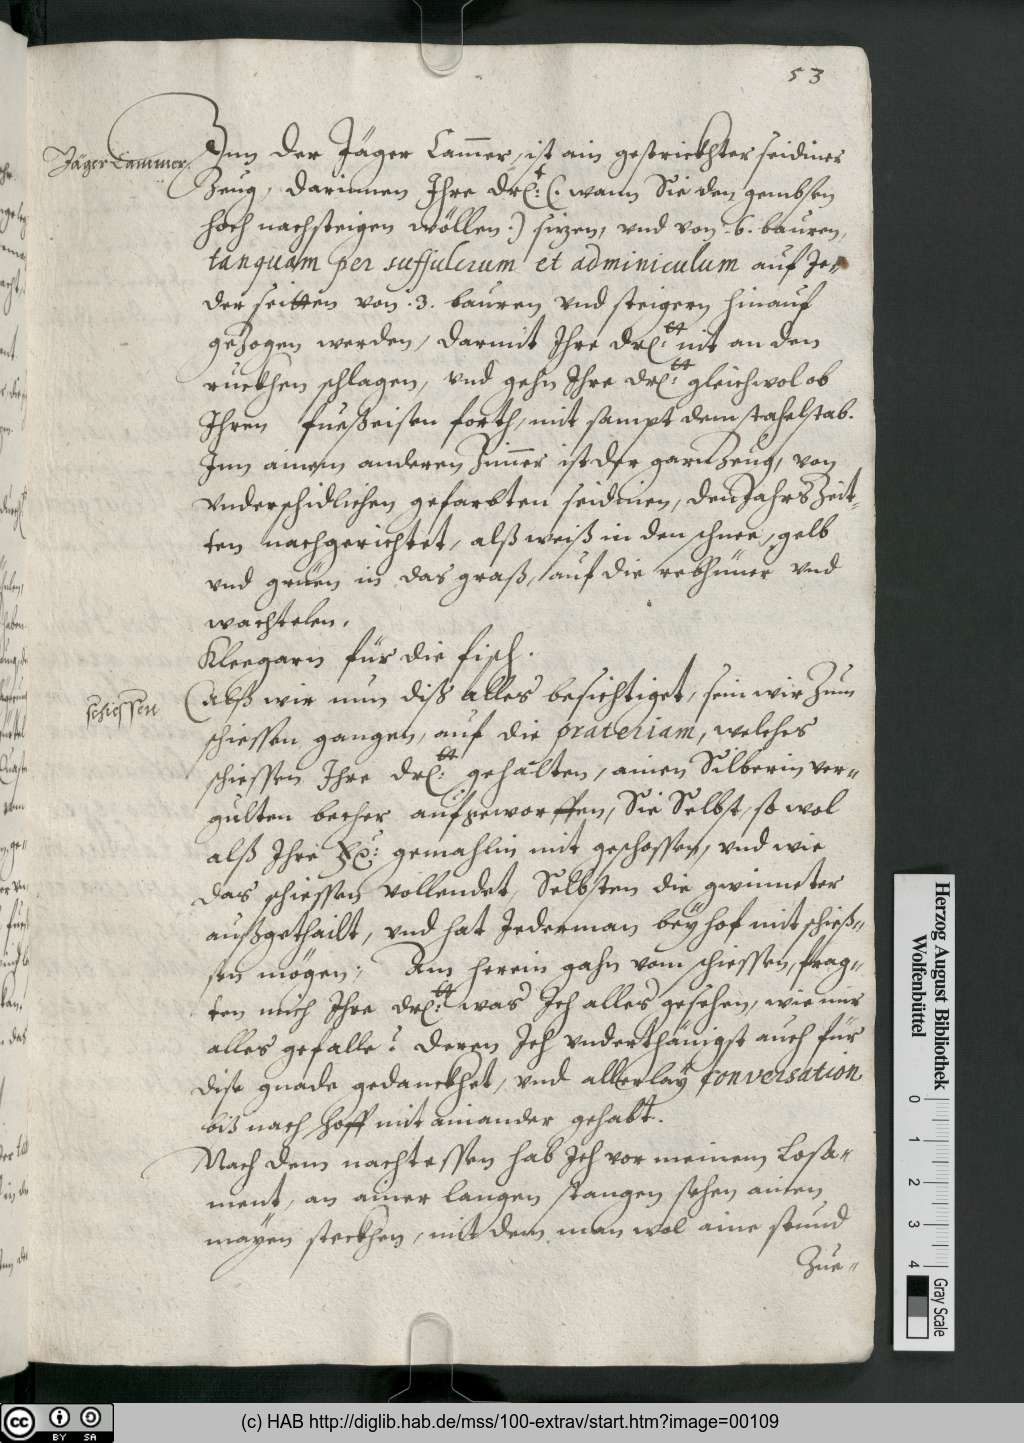 53
Jäger Cammer.
Inn der Jäger Cam̅er, ist ain gestrickhter seidiner
Zeug, darinnen Ihre Drl: (: wann Sie den gembsen
hoch nachsteigen wöllen :) sizen, vnd von .6. bauren,
tanquam per suffulcrum et adminiculum auf Je-
der seitten von .3. bauren vnd steigern hinauf
gezogen werden, darmit Ihre Drl:tt nit an den
ruckhen schlagen, vnd gehn Ihre Drl:tt gleichwol ob
Ihren fueßeisen forth, mit sampt dem stahelstab.
Inn ainem anderen Zim̅er ist der garn Zeug, von
vnderschidlichen gefarbten seidinen, den Jahrs Zeit-
ten nachgerichtet, alß weiß in den schnee, gelb
vnd grüen in das graß, auf die rebhüner vnd
wachtelen.
Kleegarn für die fisch.
schiessen
(alß wir nun diß alles besichtiget, sein wir Zum
schiessen gangen, auf die prateriam, welches
schiessen Ihre Drl:tt gehalten, ainen Silberin ver-
gulten becher aufgeworffen, Sie Selbst, so wol
alß Ihre gemahlin mit geschossen, vnd wie
das schiessen vollendet, Selbsten die gwinneter
außgethailt, vnd hat Jederman bey hof mit schieß-
sen mögen; Am herein gahn vom schiessen, frag-
ten mich Ihre Drl:tt was Ich alles gesehen, wie mir
alles gefalle? Deren Ich vnderthänigst auch für
dise gnade gedanckhet, vnd allerlaÿ conversation
biß nach hoff mit ainander gehabt.
Nach dem nachtessen hab Ich vor meinem Losa-
ment, an ainer langen stangen, sehen ainen
mayen steckhen, mit dem man wol aine stund
Zue-
Herzog August Bibliothek
Wolfenbüttel
0 1 2 3 4
Gray Scale
cc BY SA
(c) HAB http://diglib.hab.de/mss/100-extrav/start.htm?image=00109